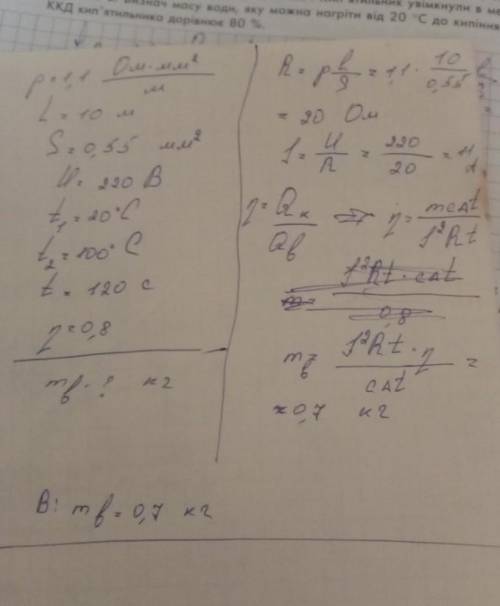 увімкнули в ме
визнач масу води, яку можна нагріти від 20 °C до кипіння
ККД кип'ятильника дорівнює 80 %.
ρ = 1,1 Ом·мм²/м
L = 10 м
S = 0,55 мм²
U = 220 В
t₁ = 20°C
t₂ = 100°C
t = 120 с
η = 0,8
mв - ? кг
R = ρ l/S = 1,1 · 10/0,55
= 20 Ом
I = U/R = 220/20 = 11
η = Qк/Qв ⇒ η = mcΔt/I²Rt
m = I²Rt · cΔt/0,8
mв = I²Rt · η/cΔt =
≈ 0,7 кг
В: mв = 0,7 кг